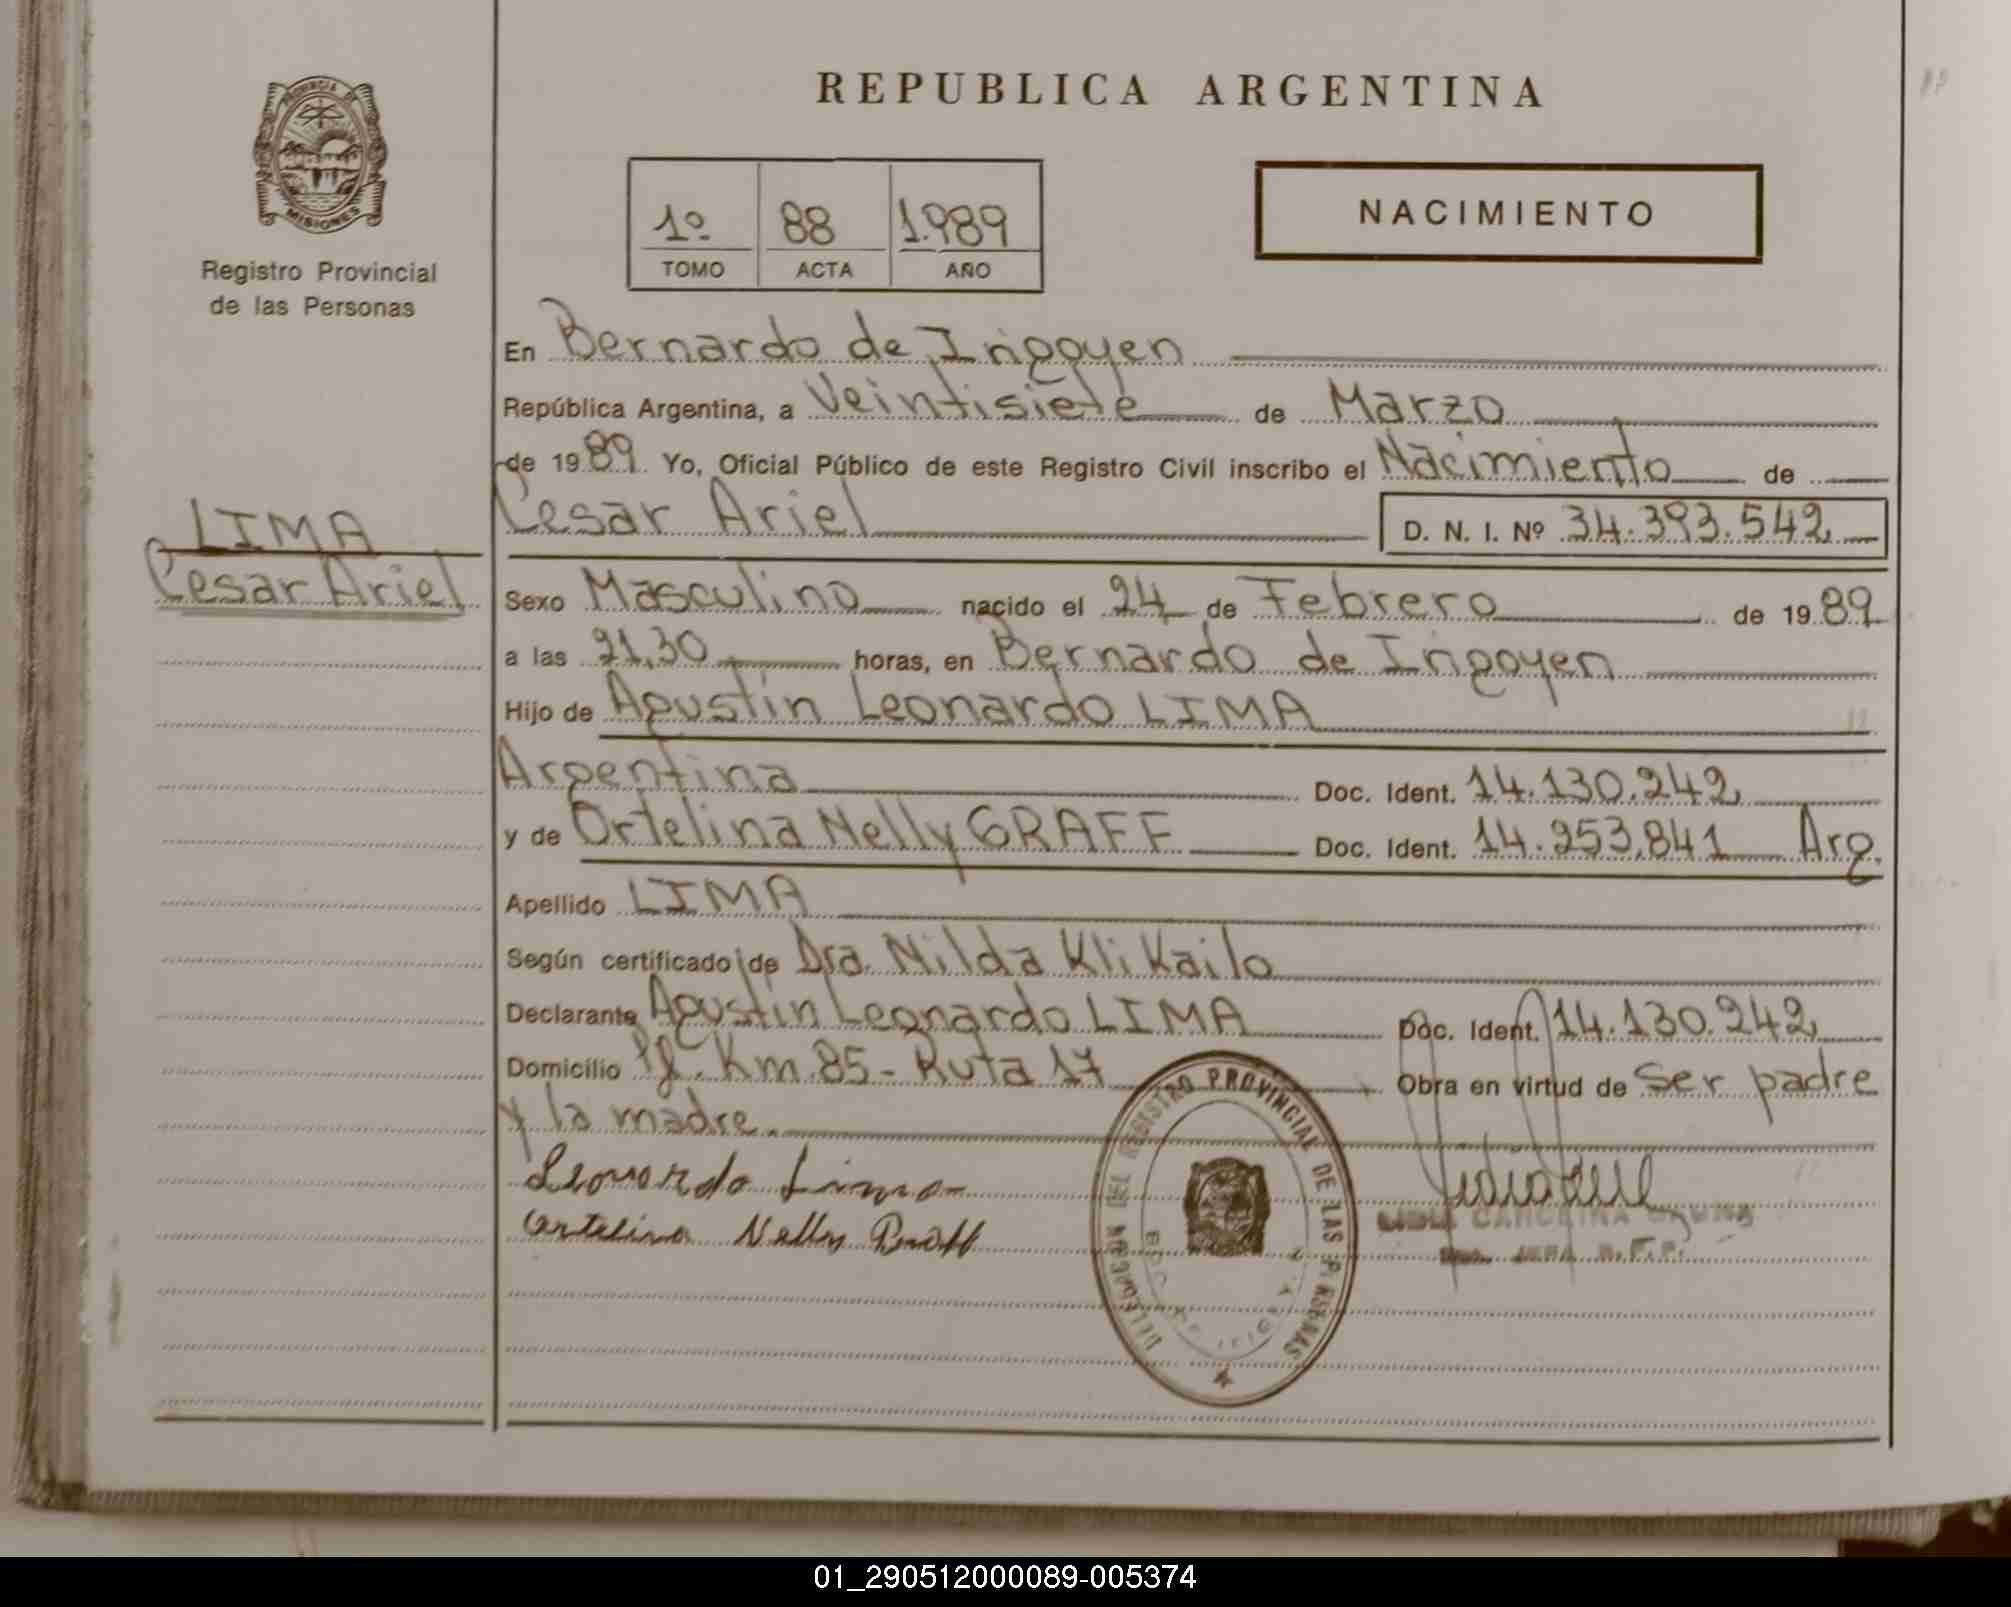 PROVINCIA DE
MISIONES
Registro Provincial
de las Personas
LIMA
Cesar Ariel
REPUBLICA ARGENTINA
1º 88 1.989
TOMO ACTA AÑO
NACIMIENTO
En Bernardo de Irigoyen
República Argentina, a Veintisiete de Marzo
de 1989 Yo, Oficial Público de este Registro Civil inscribo el Nacimiento de
Cesar Ariel D. N. I. Nº 34.393.542
Sexo Masculino nacido el 24 de Febrero de 1989
a las 21,30 horas, en Bernardo de Irigoyen
Hijo de Agustin Leonardo LIMA
Argentina Doc. Ident. 14.130.242
y de Ortelina Nelly GRAFF Doc. Ident. 14.253.841 Arg.
Apellido LIMA
Según certificado de Dra. Nilda Kli Kailo
Declarante Agustin Leonardo LIMA Doc. Ident. 14.130.242
Domicilio Km.85 - Ruta 17 Obra en virtud de Ser padre
y la madre.
Leonardo Lima
Ortelina Nelly Graff
DELEGACION DEL REGISTRO PROVINCIAL DE LAS PERSONAS
01_290512000089-005374